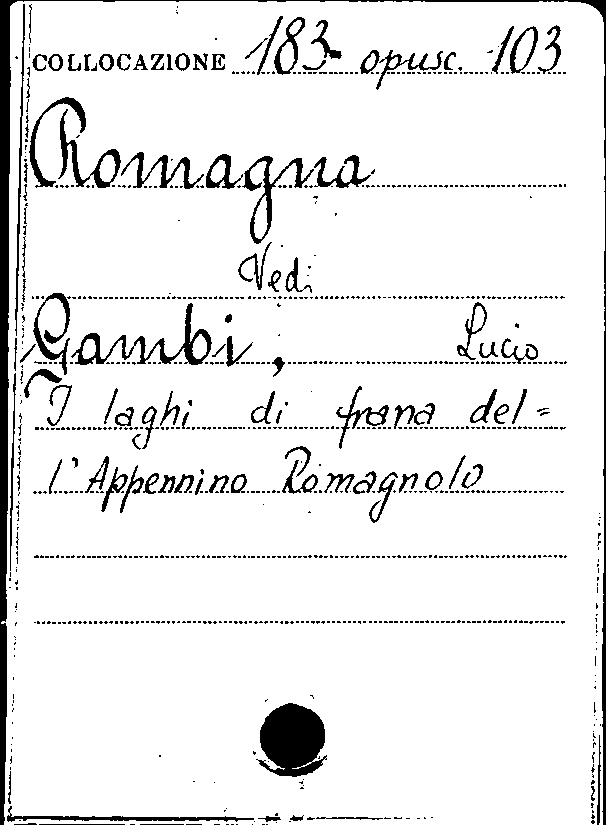 COLLOCAZIONE 183- opusc. 103
Romagna
Vedi
Gambi, Lucio
I laghi di frana del=
l'Appennino Romagnolo